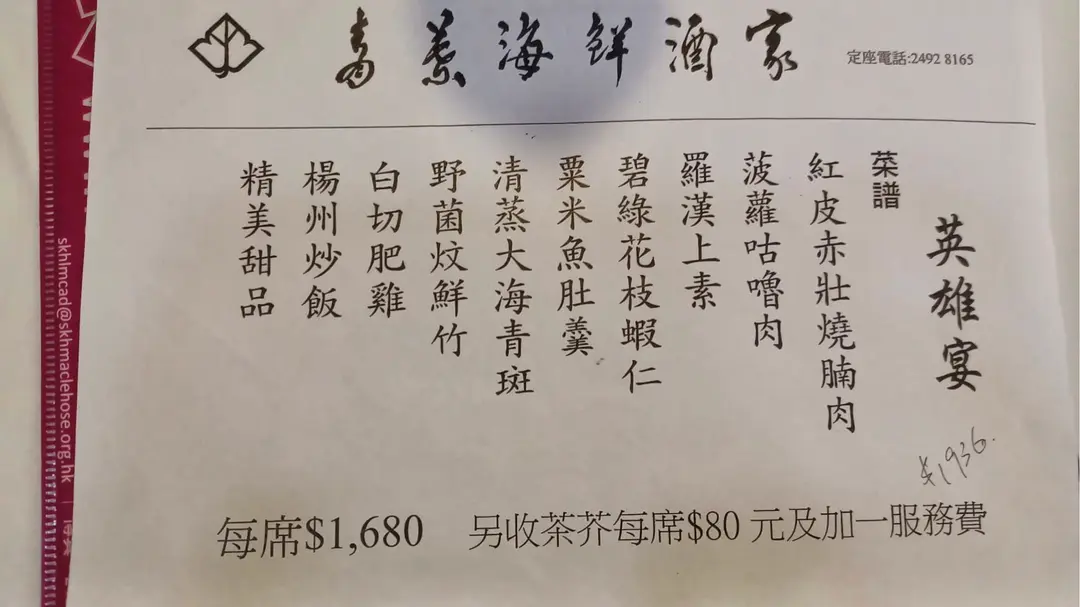 海鮮酒家
定座電話:2492 8165
英雄宴
菜譜
紅皮赤壯燒腩肉
菠蘿咕嚕肉
羅漢上素
碧綠花枝蝦仁
粟米魚肚羹
清蒸大海青斑
野菌炆鮮竹
白切肥雞
楊州炒飯
精美甜品
$1936.
每席$1,680 另收茶芥每席$80 元及加一服務費
skhlmcad@skhmaclehose.org.hk